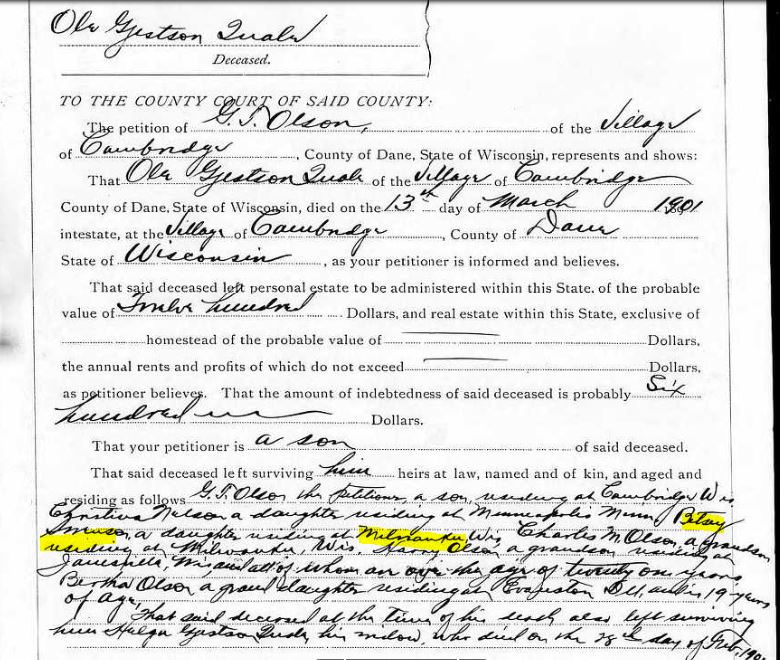 Ole Gjestson Quale
Deceased.
TO THE COUNTY COURT OF SAID COUNTY:
The petition of G. T. Olson, of the Village
of Cambridge, County of Dane, State of Wisconsin, represents and shows:
That Ole Gjestson Quale of the Village of Cambridge
County of Dane, State of Wisconsin, died on the 13th day of March 1901
intestate, at the Village of Cambridge, County of Dane
State of Wisconsin, as your petitioner is informed and believes.
That said deceased left personal estate to be administered within this State, of the probable
value of Twelve hundred Dollars, and real estate within this State, exclusive of
homestead of the probable value of Dollars,
the annual rents and profits of which do not exceed Dollars,
as petitioner believes. That the amount of indebtedness of said deceased is probably Six
hundred Dollars.
That your petitioner is a son of said deceased.
That said deceased left surviving him heirs at law, named and of kin, and aged and
residing as follows G. T. Olson the petitioner, a son, residing at Cambridge Wis
Christina Nelson a daughter residing at Minneapolis Minn Betsy
a daughter residing at Milwaukee, Wis, Charles M. Olson, a grandson
residing at Milwaukee, Wis. Harry Olson a grandson residing at
Janesville, Wis and all of whom are over the age of twenty one years,
Bertha Olson a grand daughter residing at Evanston Ill, and is 19 years
of age,
That said deceased at the time of his death also left surviving
him Helga Gjestson Quale, his widow, who died on the 28th day of Feb, 190